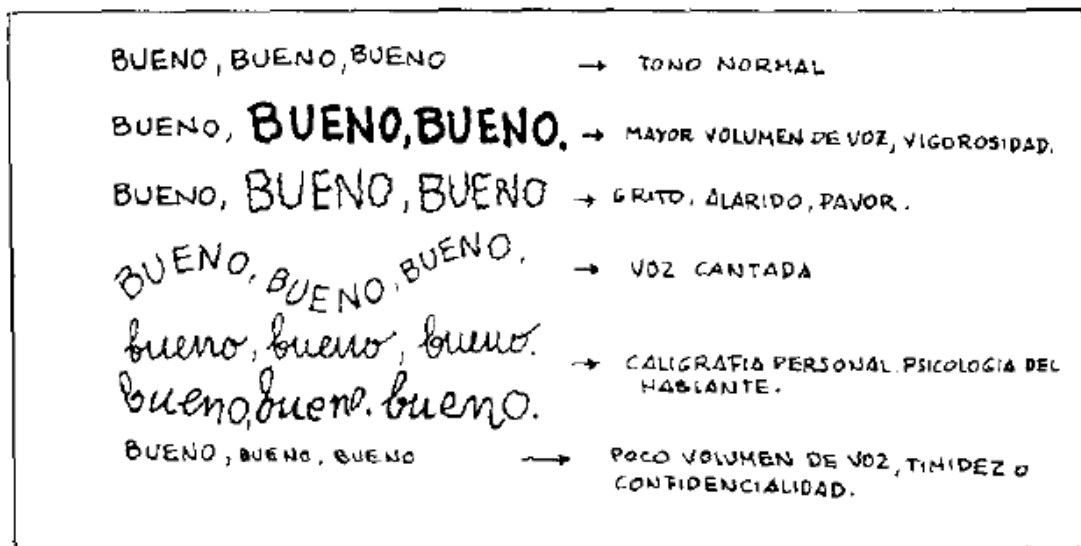 BUENO, BUENO, BUENO → TONO NORMAL
BUENO, BUENO, BUENO. → MAYOR VOLUMEN DE VOZ, VIGOROSIDAD.
BUENO, BUENO, BUENO → GRITO. ALARIDO, PAVOR.
BUENO, BUENO, BUENO. → VOZ CANTADA
bueno, bueno, bueno.
→ CALIGRAFIA PERSONAL. PSICOLOGIA DEL
HABLANTE.
bueno, bueno. bueno.
BUENO, BUENO, BUENO → POCO VOLUMEN DE VOZ, TIMIDEZ O
CONFIDENCIALIDAD.